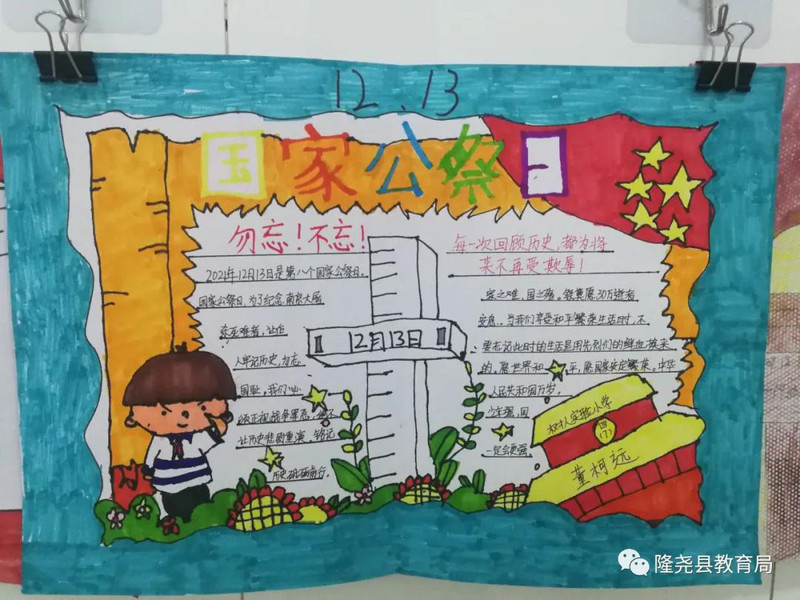 12.13
国家公祭日
勿忘！不忘！
2021年12月13日是第八个国家公祭日。
国家公祭日，为了纪念南京大屠
杀死难者，让世
人牢记历史，勿忘
国耻。我们
让历史悲剧重演 铭记
历史 砥砺前行。
12月13日
每一次回顾历史，都为将
来不再受欺辱！
家之难，国之殇。
安息，当我们享受和平繁荣生活时，不
要忘记此时的生活是用先烈们的鲜血换来
的，愿世界和平，愿国家安定繁荣。中华
人民共和国万岁。
少年强，国
一定会更强。
树人实验小学
四
(7)
董柯远
隆尧县教育局